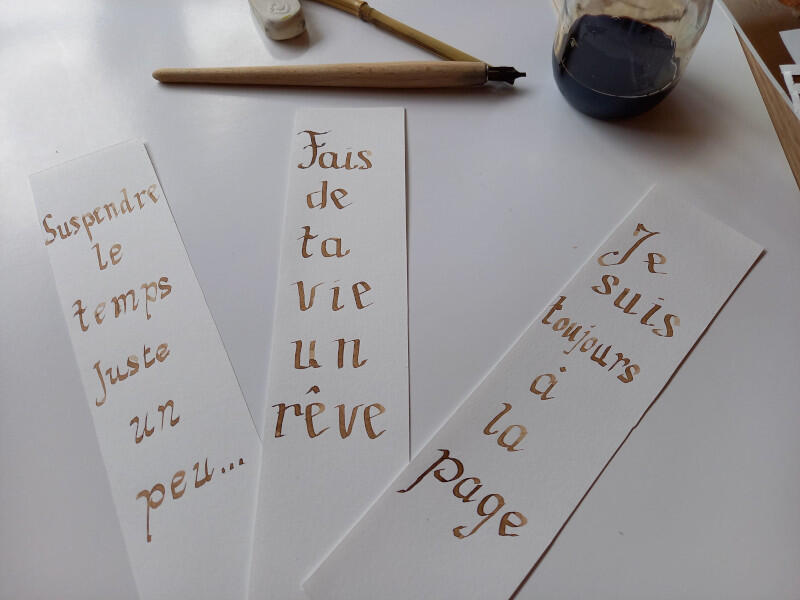 Suspendre
le
temps
Juste
un
peu...
Fais
de
ta
vie
un
rêve
Je
suis
toujours
à
la
page